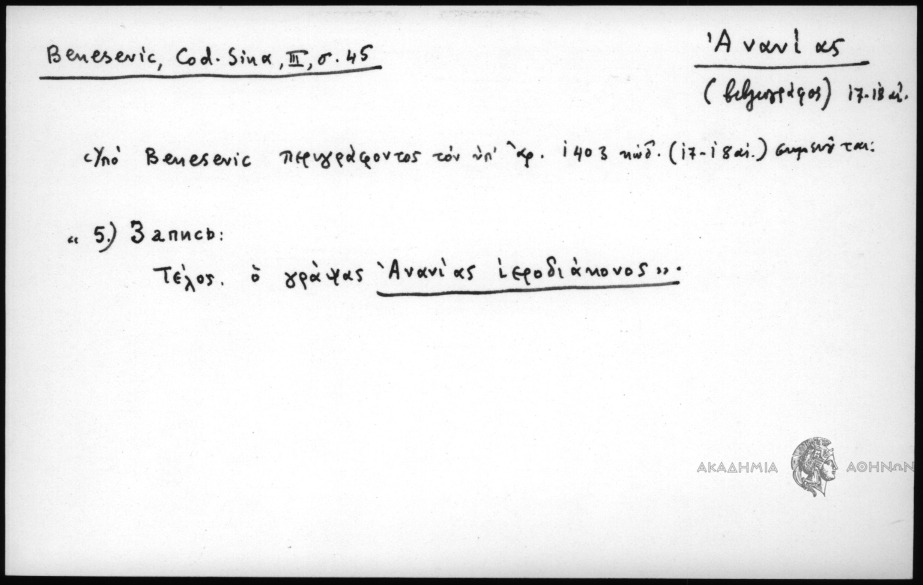 Benesevic, Cod. Sina, III, σ. 45
Ἀνανίας
(βιβλιογράφος) 17-18 αἰ.
Ὑπὸ Benesevic περιγράφοντος τὸν ὑπ' ἀρ. 1403 κώδ. (17-18 αἰ.) σημειοῦται:
« 5.) Запись:
Τέλος. ὁ γράψας Ἀνανίας ἱεροδιάκονος».
ΑΚΑΔΗΜΙΑ ΑΘΗΝΩΝ